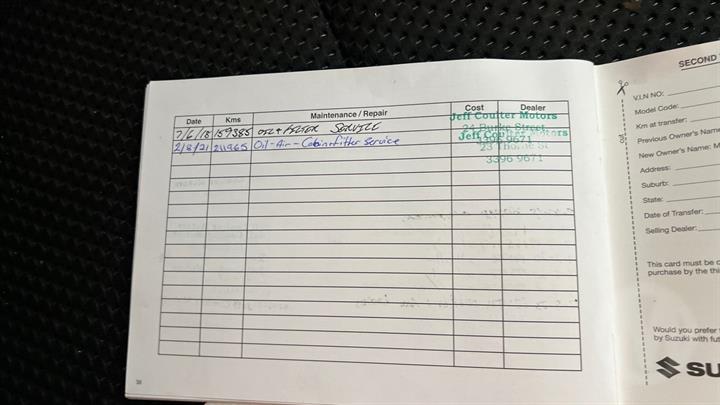 Date Kms Maintenance / Repair Cost Dealer
7/6/18 159385 OIL + FILTER SERVICE Jeff Coulter Motors
24 Burke Street
3396 9671
2/8/21 211965 Oil-Air-Cabin filter Service Jeff Coulter Motors
23 Thorne St
3396 9671
38
SECOND
V.I.N NO:
Model Code:
Km at transfer:
Previous Owner's Name
New Owner's Name: M
Address:
Suburb:
State:
Date of Transfer:
Selling Dealer:
This card must be
purchase by the thi
Would you prefer
by Suzuki with fut
SU